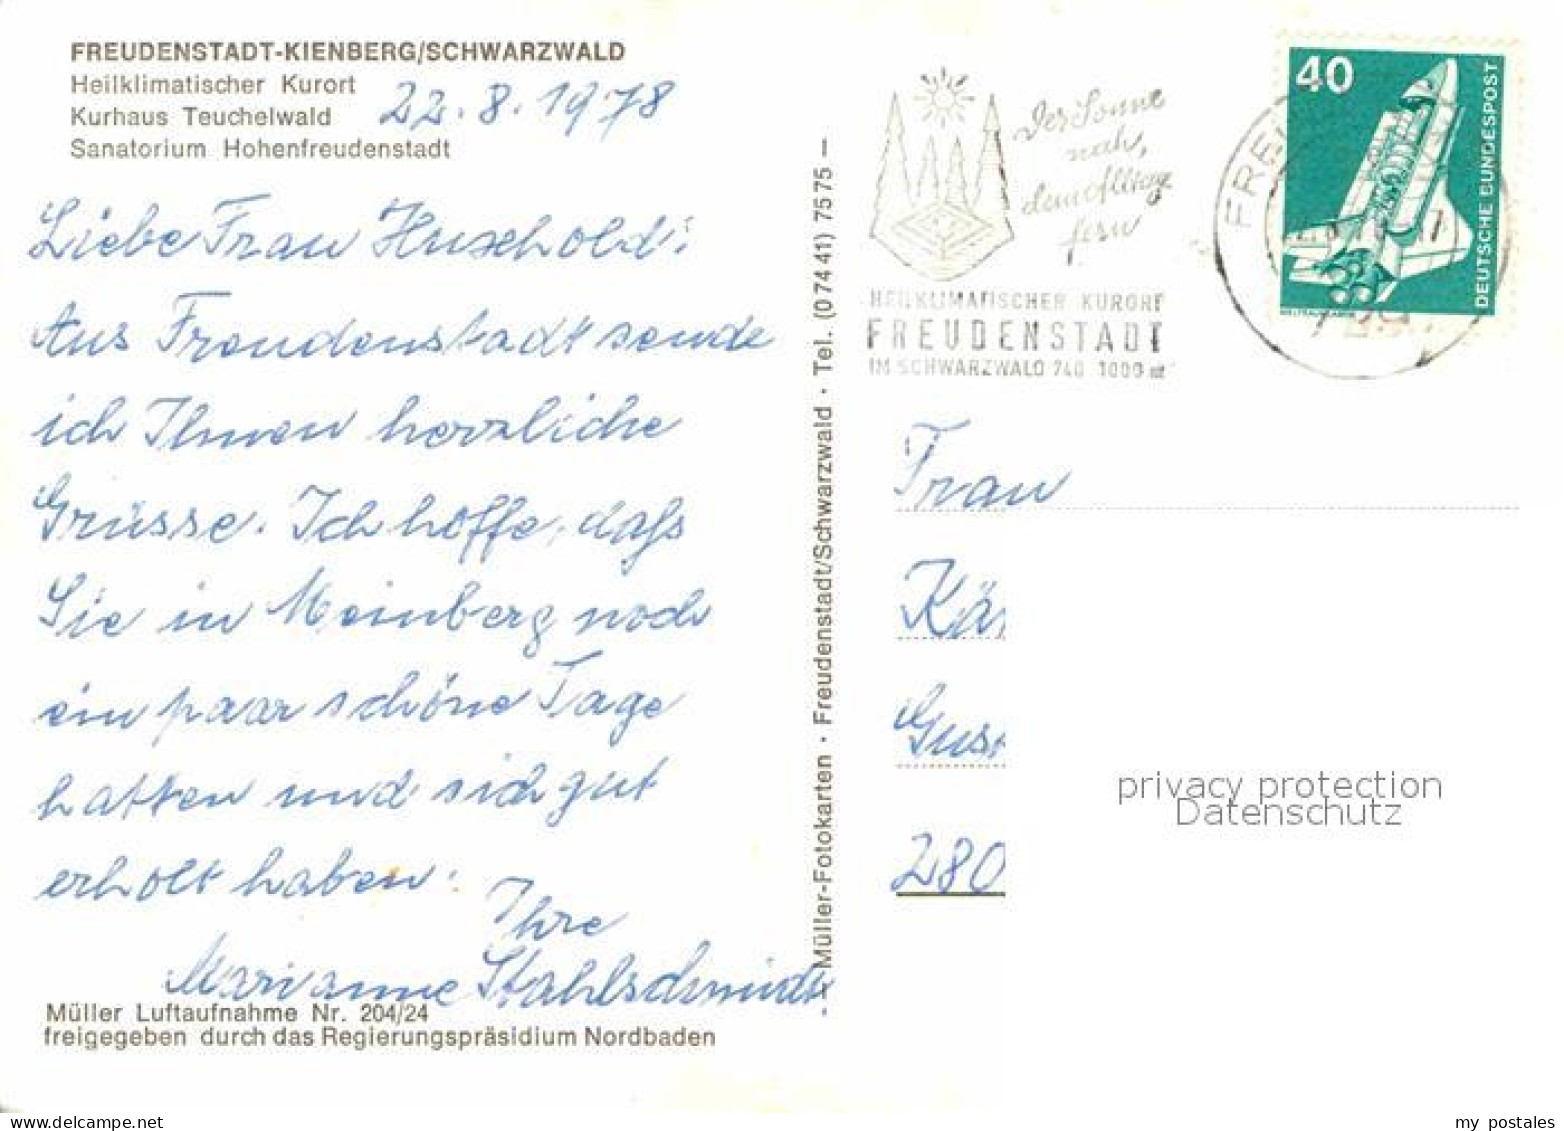 FREUDENSTADT-KIENBERG/SCHWARZWALD
Heilklimatischer Kurort
Kurhaus Teuchelwald
Sanatorium Hohenfreudenstadt
22.8.1978
Liebe Frau Huxhold!
Aus Freudenstadt sende
ich Ihnen herzliche
Grüsse. Ich hoffe, daß
Sie in Meinberg noch
ein paar schöne Tage
hatten und sich gut
erholt haben.
Ihre
Marianne Stahlschmidt
Müller Luftaufnahme Nr. 204/24
freigegeben durch das Regierungspräsidium Nordbaden
Müller-Fotokarten · Freudenstadt/Schwarzwald · Tel. (07441) 7575
Der Sonne
nah,
dem Alltag
fern
HEILKLIMATISCHER KURORT
FREUDENSTADT
IM SCHWARZWALD 740 1000 m
40
DEUTSCHE BUNDESPOST
WELTRAUMLABOR
FREU
729
Frau
Kä
Gus
280
privacy protection
Datenschutz
www.delcampe.net
my_postales